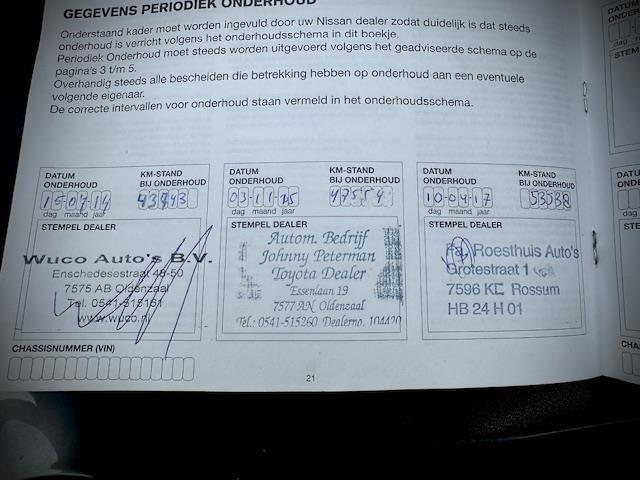 GEGEVENS PERIODIEK ONDERHOUD
Onderstaand kader moet worden ingevuld door uw Nissan dealer zodat duidelijk is dat steeds
onderhoud is verricht volgens het onderhoudsschema in dit boekje.
Periodiek Onderhoud moet steeds worden uitgevoerd volgens het geadviseerde schema op de
pagina's 3 t/m 5.
Overhandig steeds alle bescheiden die betrekking hebben op onderhoud aan een eventuele
volgende eigenaar.
De correcte intervallen voor onderhoud staan vermeld in het onderhoudsschema.
DATUM ONDERHOUD
KM-STAND BIJ ONDERHOUD
15-07-14
43443
dag maand jaar
STEMPEL DEALER
Wuco Auto's B.V.
Enschedesestraat 48-50
7575 AB Oldenzaal
Tel. 0541-515161
www.wuco.nl
CHASSISNUMMER (VIN)
DATUM ONDERHOUD
KM-STAND BIJ ONDERHOUD
03-11-15
47554
dag maand jaar
STEMPEL DEALER
Autom. Bedrijf
Johnny Peterman
Toyota Dealer
Essenlaan 19
7577 AN Oldenzaal
Tel.: 0541-515260 Dealerno. 104420
DATUM ONDERHOUD
KM-STAND BIJ ONDERHOUD
10-04-17
53538
dag maand jaar
STEMPEL DEALER
Fa. Roesthuis Auto's
Grotestraat 1
7596 KE Rossum
HB 24 H 01
21